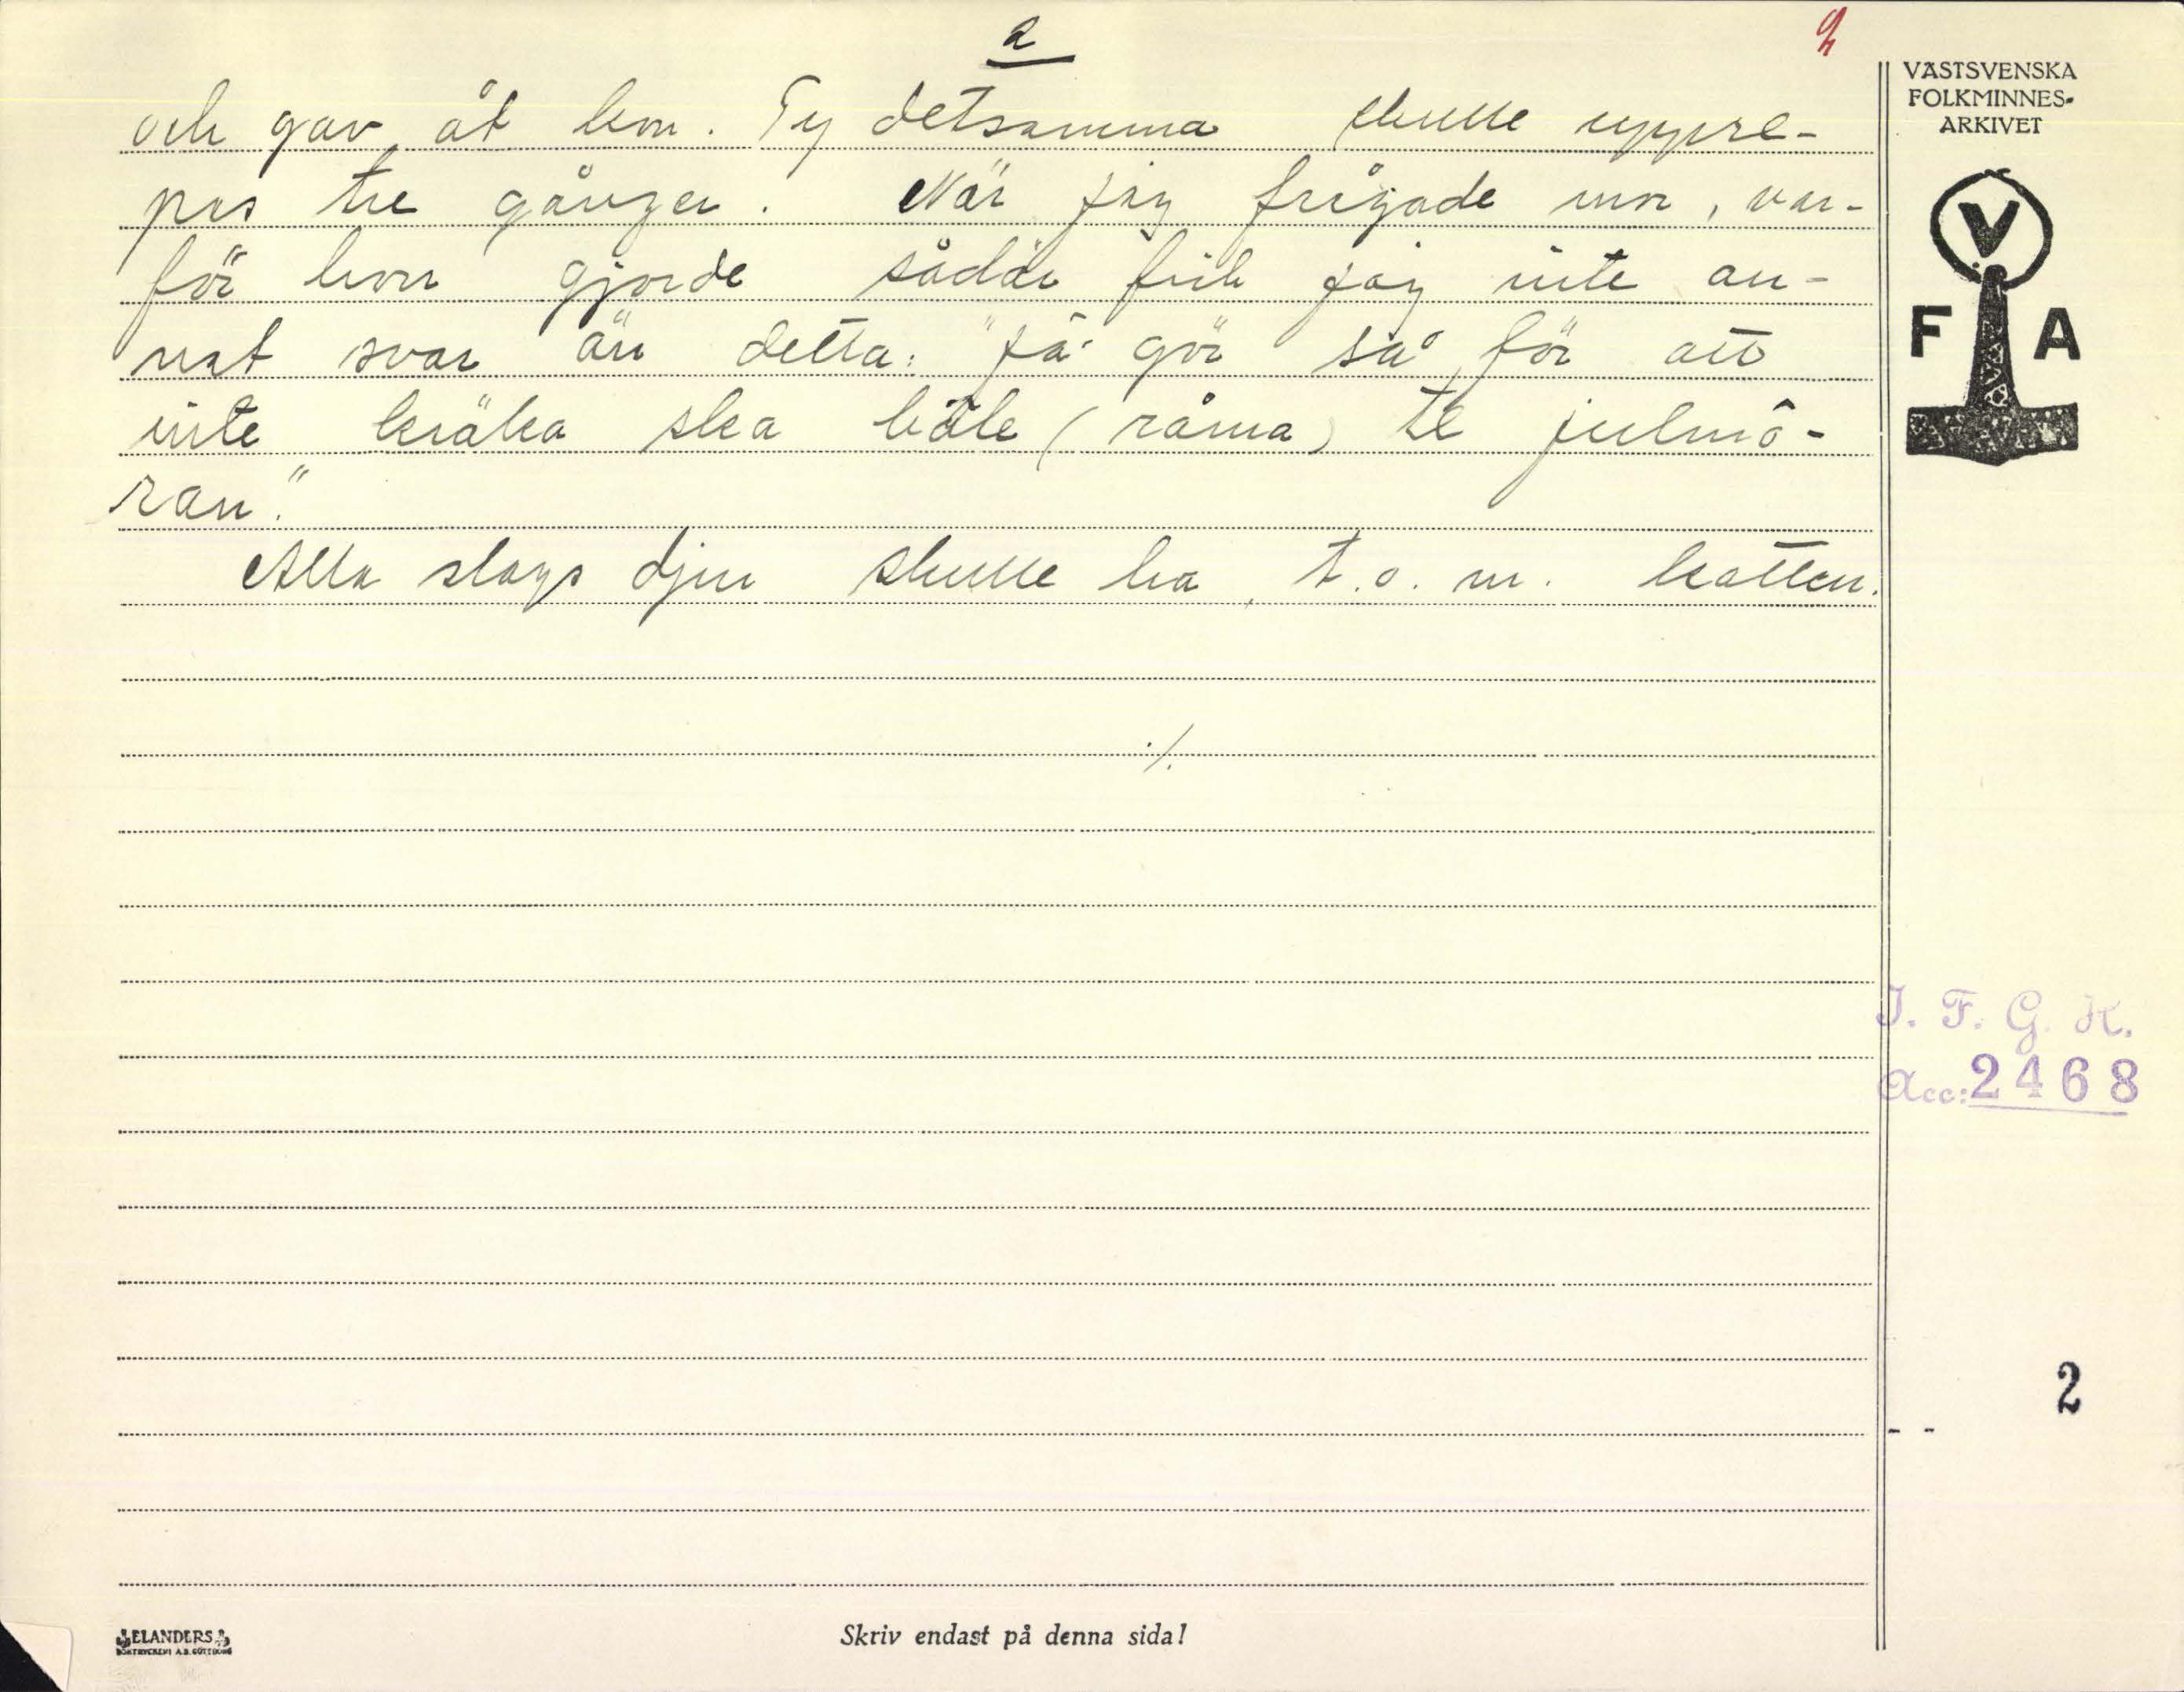 2
2
VÄSTSVENSKA
FOLKMINNES-
ARKIVET
och gav åt kon. Ty detsamma skulle uppre-
pas tre gånger. När jag frågade mor, var-
för hon gjorde sådär fick jag inte an-
nat svar än detta: "Ja gör så för att
inte kräka ska böle (råma) te julmô-
ran."
Alla slags djur skulle ha, t.o.m. katten.
./.
V
F A
I. F. G. H.
Acc: 2468
2
- -
ELANDERS
BOKTRYCKERI A.B. GÖTEBORG
Skriv endast på denna sida!